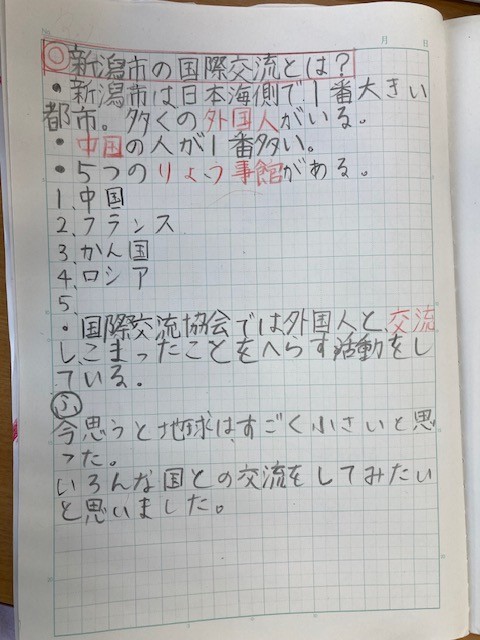 月 日
◎新潟市の国際交流とは?
・新潟市は日本海側で1番大きい
都市。多くの外国人がいる。
・中国の人が1番多い。
・5つのりょう事館がある。
1、中国
2、フランス
3、かん国
4、ロシア
5、
・国際交流協会では外国人と、交流
しこまったことをへらす活動をし
ている。
ふ
今思うと地球は、すごく小さいと思
った。
いろんな国との交流をしてみたい
と思いました。